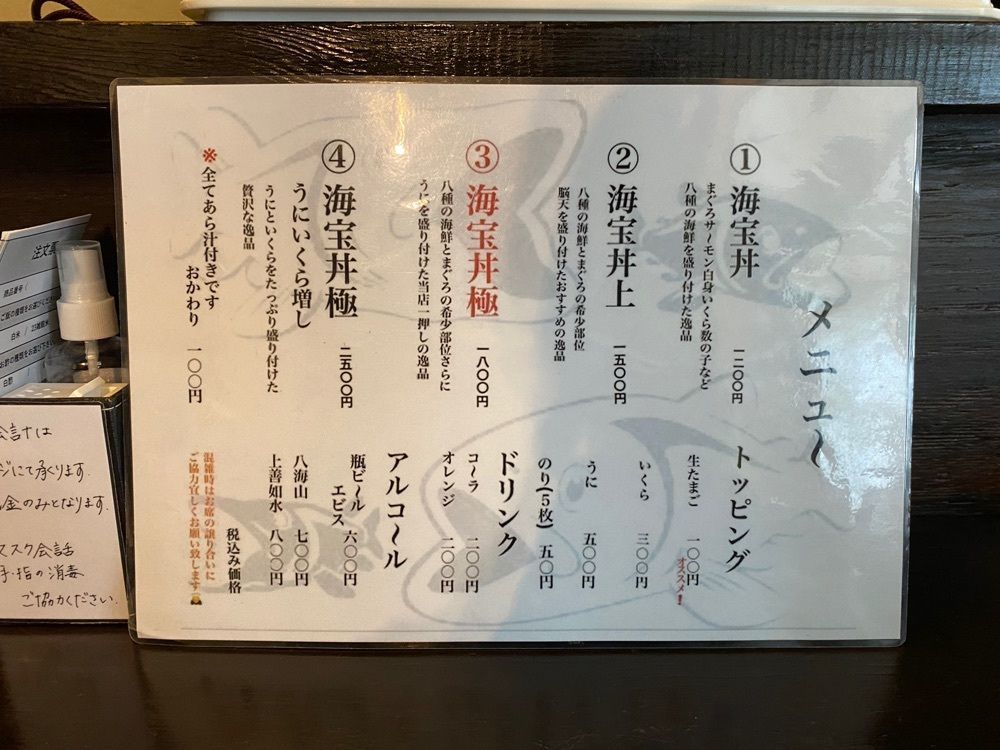 メニュ〜
① 海宝丼 一二〇〇円
まぐろサ〜モン白身いくら数の子など
八種の海鮮を盛り付けた逸品
② 海宝丼上 一五〇〇円
八種の海鮮とまぐろの希少部位
脳天を盛り付けたおすすめの逸品
③ 海宝丼極 一八〇〇円
八種の海鮮とまぐろの希少部位さらに
うにを盛り付けた当店一押しの逸品
④ 海宝丼極 二五〇〇円
うにいくら増し
うにといくらをたっぷり盛り付けた
贅沢な逸品
※全てあら汁付きです
おかわり 一〇〇円
トッピング
生たまご 一〇〇円
オススメ!
いくら 三〇〇円
うに 五〇〇円
のり(5枚) 五〇円
ドリンク
コ〜ラ 二〇〇円
オレンジ 二〇〇円
アルコ〜ル
瓶ビ〜ル
エビス 六〇〇円
八海山 七〇〇円
上善如水 八〇〇円
税込み価格
混雑時はお席の譲り合いに
ご協力宜しくお願い致します
注文票
商品番号
白米 / 23雑穀米
会計は
ジにて承ります
金のみとなります.
スク会話
手・指の消毒
ご協力ください.